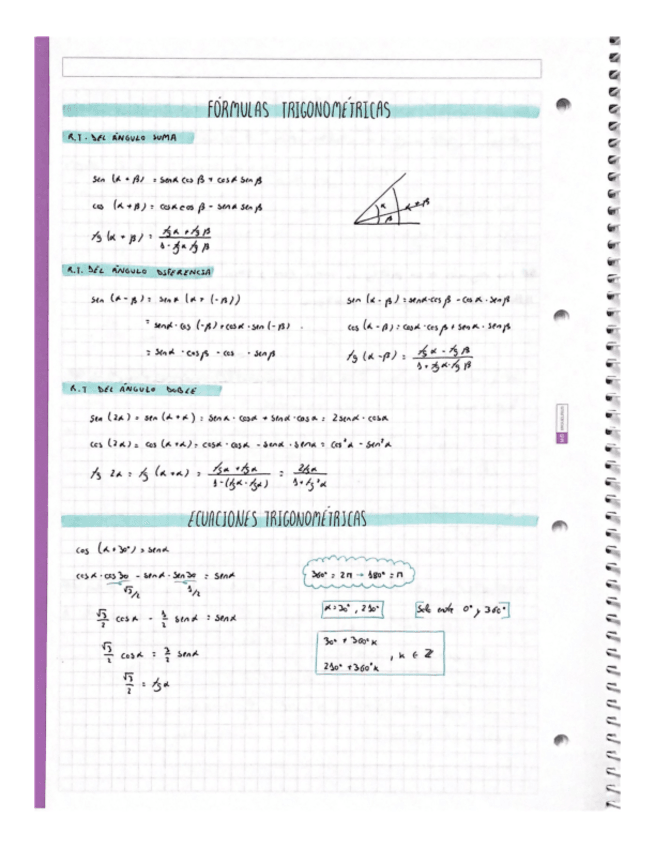 FÓRMULAS TRIGONOMÉTRICAS
R.T. DEL ÁNGULO SUMA
sen (α + β) = senα cos β + cosα sen β
cos (α + β) = cosα cos β - senα sen β
tg (α + β) = (tg α + tg β) / (1 - tg α tg β)
α
β
α + β
R.T. DEL ÁNGULO DIFERENCIA
sen (α - β) = sen (α + (-β))
= senα · cos (-β) + cosα · sen (-β)
= senα · cosβ - cos · senβ
sen (α - β) = senα·cosβ - cosα · senβ
cos (α - β) = cosα · cosβ + senα · senβ
tg (α - β) = (tg α - tg β) / (1 + tg α · tg β)
R.T DEL ÁNGULO DOBLE
sen (2α) = sen (α + α) = senα · cosα + senα · cosα = 2senα · cosα
cos (2α) = cos (α + α) = cosα · cosα - senα · senα = cos²α - sen²α
tg 2α = tg (α + α) = (tg α + tg α) / (1 - (tg α · tg α)) = 2tg α / (1 + tg²α)
ECUACIONES TRIGONOMÉTRICAS
cos (α + 30°) = senα
cosα · cos 30 - senα · sen 30 = senα
√3/2 1/2
√3/2 cosα - 1/2 senα = senα
√3/2 cosα = 3/2 senα
√3/2 = tg α
360° = 2π → 180° = π
α = 30°, 210°
Solo entre 0° y 360°
30° + 360°k
210° + 360°k
, k ∈ ℤ